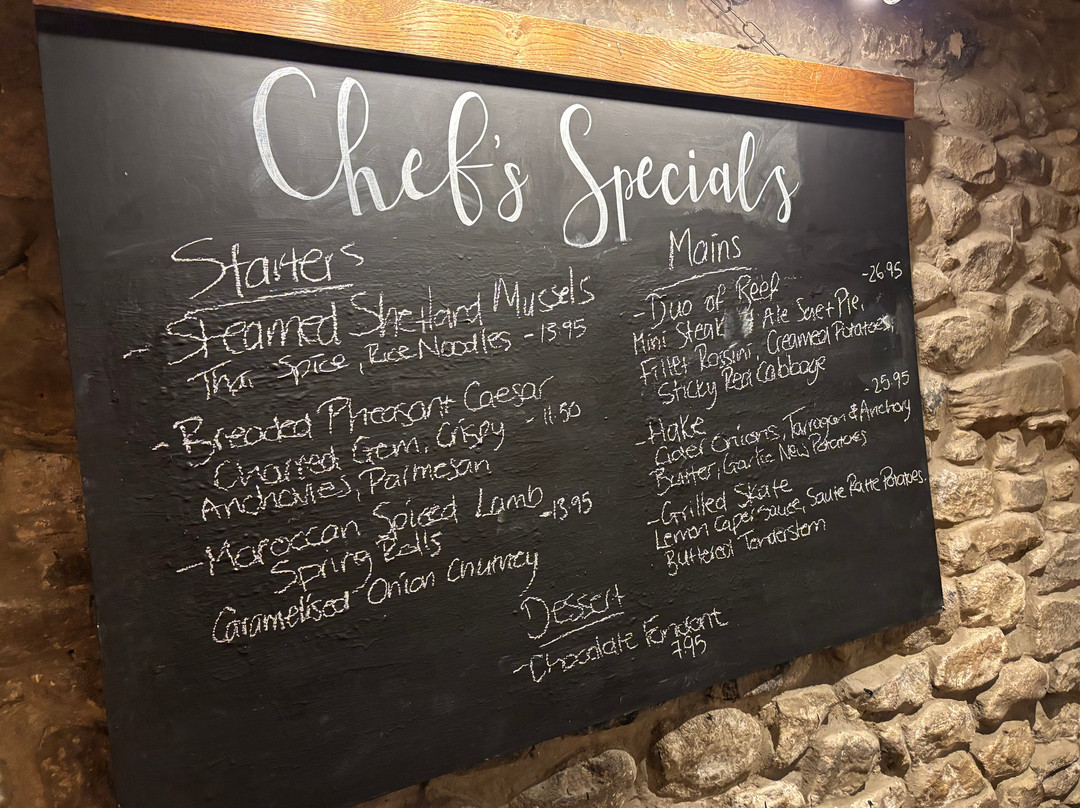 Chef's Specials
Starters
- Steamed Shetland Mussels
Thai Spice, Rice Noodles - 13.95
- Breaded Pheasant Caesar
Charred Gem, Crispy - 11.50
Anchovies, Parmesan
- Moroccan Spiced Lamb
Spring Rolls - 13.95
Caramelised Onion Chutney
Mains
- Duo of Beef - 26.95
Mini Steak & Ale Suet Pie,
Fillet Rossini, Creamed Potatoes,
Sticky Red Cabbage
- Hake - 25.95
Cider Onions, Tarragon & Anchovy
Butter, Garlic New Potatoes
- Grilled Skate
Lemon Caper Sauce, Saute Ratte Potatoes.
Buttered Tenderstem
Dessert
- Chocolate Fondant
7.95